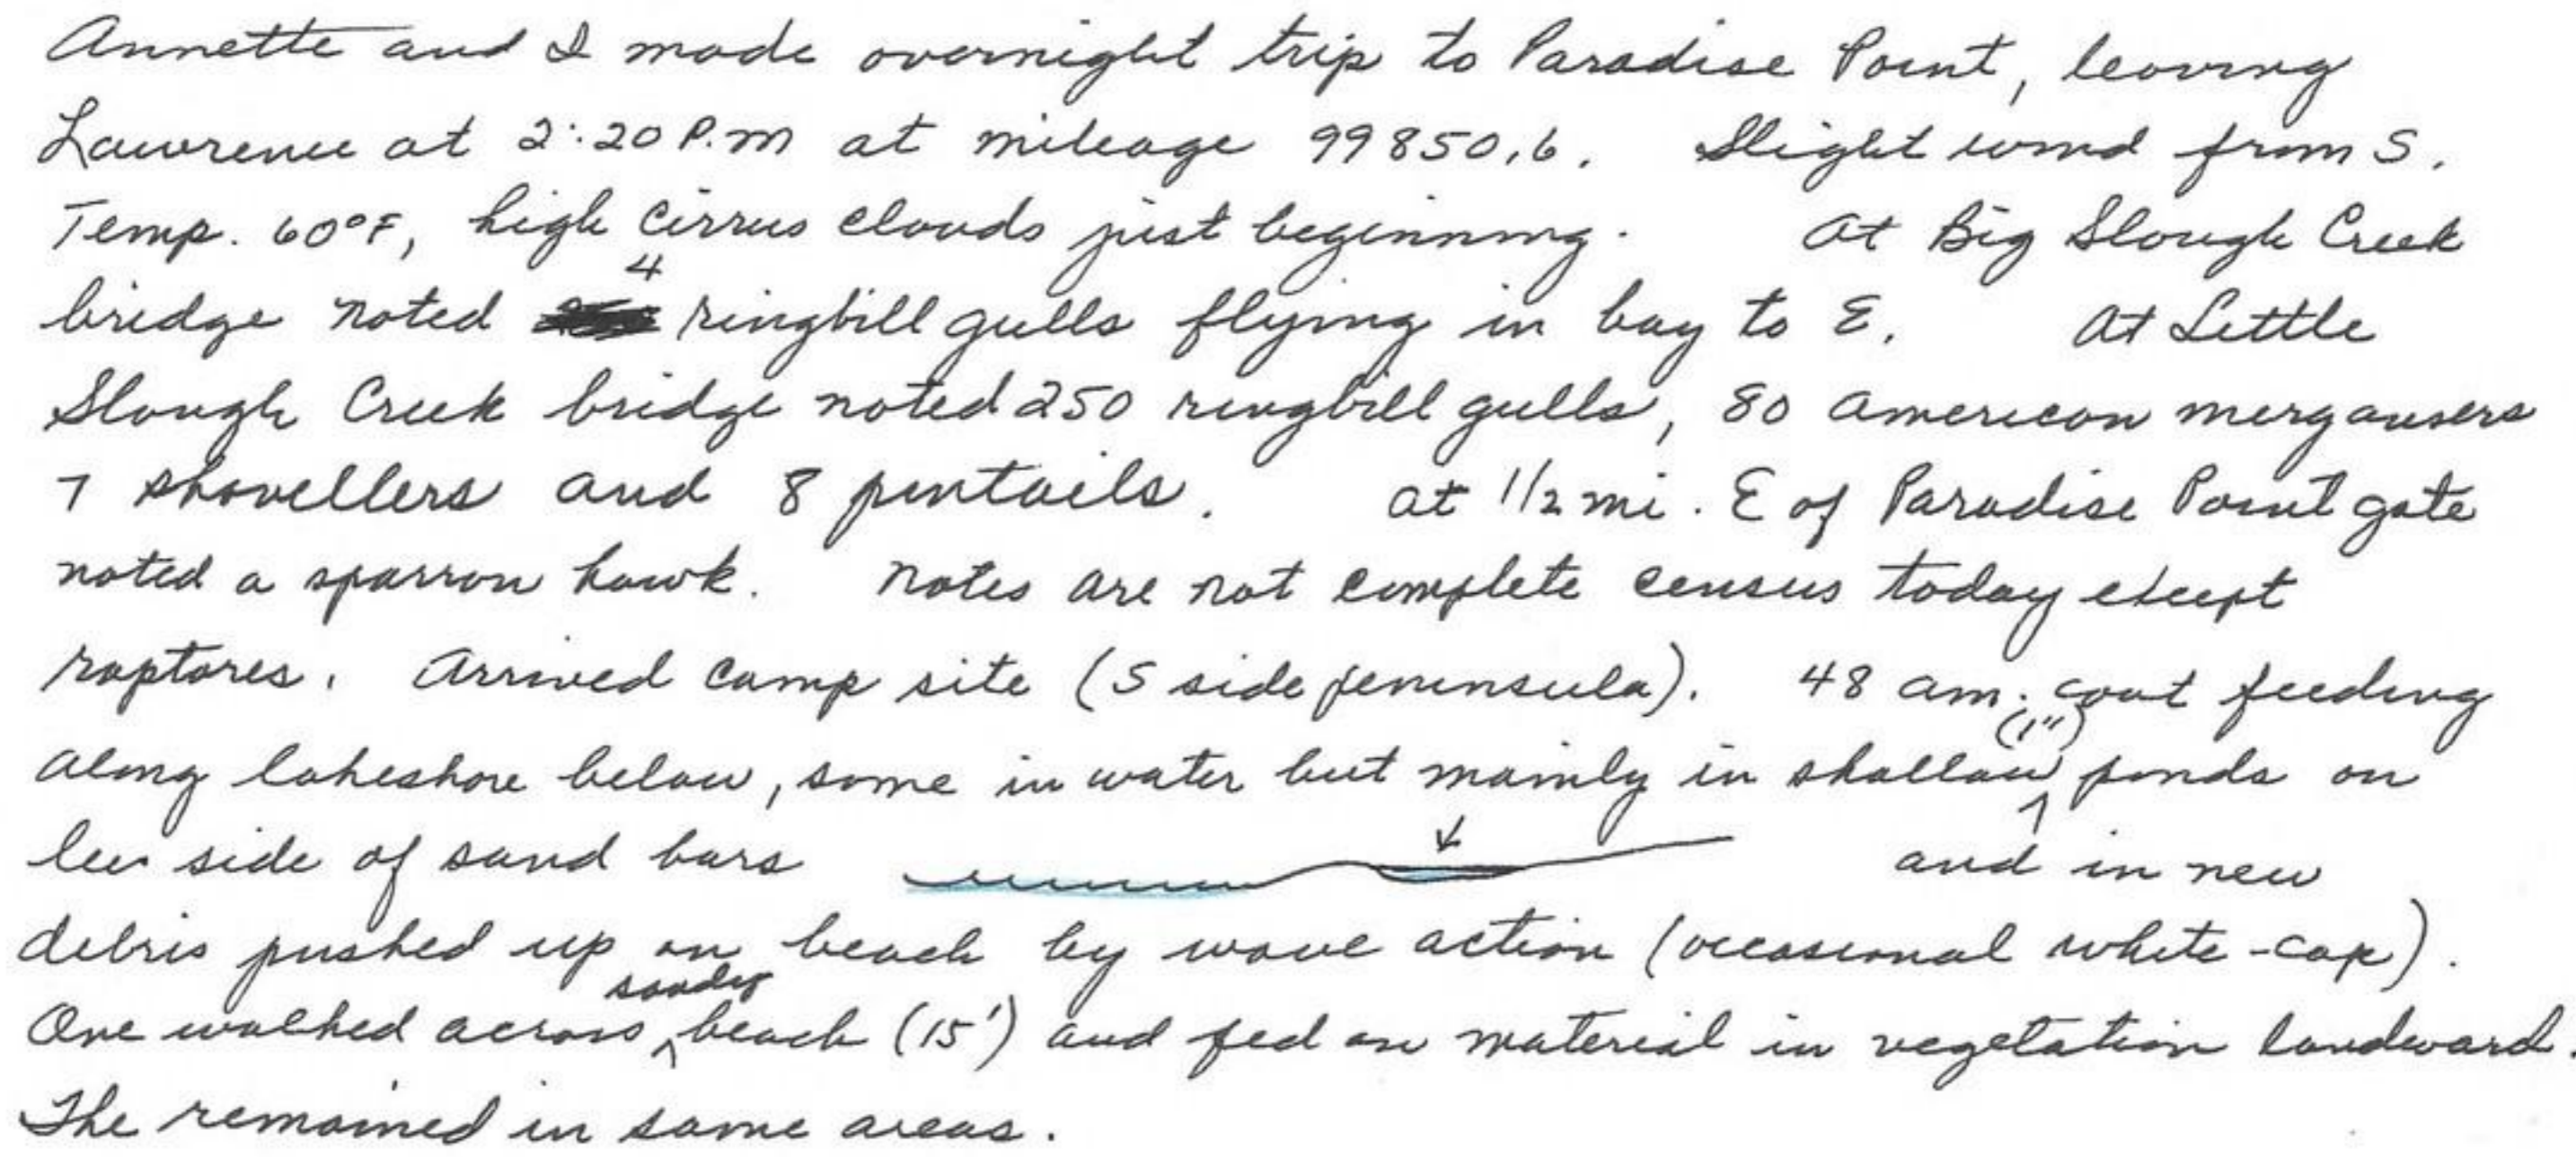 Annette and I made overnight trip to Paradise Point, leaving
Lawrence at 2:20 P.m at mileage 99850.6. Slight wind from S.
Temp. 60°F, high cirrus clouds just beginning. At Big Slough Creek
bridge noted 4 ringbill gulls flying in bay to E. At Little
Slough Creek bridge noted 250 ringbill gulls, 80 American mergansers
7 shovellers and 8 pintails. at 1/2 mi. E of Paradise Point gate
noted a sparrow hawk. Notes are not complete census today except
raptores. Arrived camp site (S side peninsula). 48 am. coot feeding
along lakeshore below, some in water but mainly in shallow (1") ponds on
lee side of sand bars and in new
debris pushed up on beach by wave action (occasional white-cap).
One walked across sandy beach (15') and fed on material in vegetation landward.
The remained in same areas.